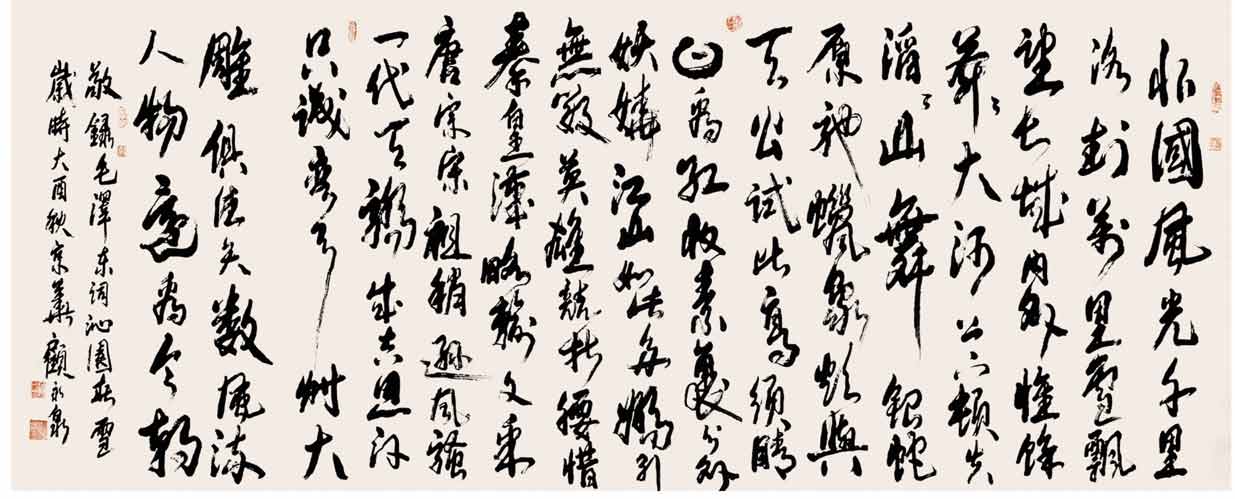 北國風光千里
冰封萬里雪飄
望長城內外惟餘
莽〻大河上下頓失
滔〻山舞銀蛇
原馳蠟象欲與
天公試比高須晴
日看紅妝素裹分外
妖嬈江山如此多嬌引
無數英雄競折腰惜
秦皇漢略輸文采
唐宗宋祖稍遜風騷
一代天驕成吉思汗
只識彎弓射大
雕俱往矣數風流
人物還看今朝
敬錄毛澤東詞沁園春雪
歲時乙酉秋京華顧永泉